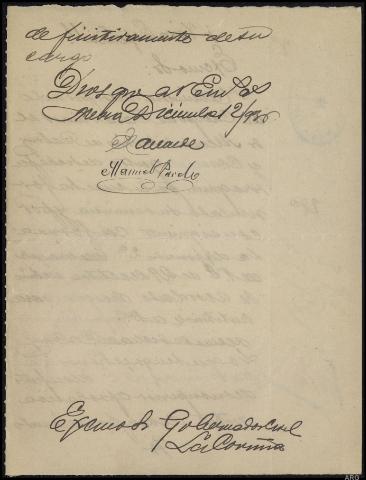 definitivamente de su
cargo
Dios gue a V E m. a.
Diciembre 12/93
El Alcalde
Manuel Pardo
Excmo Sr Gobernador Civil
La Coruña
ARG